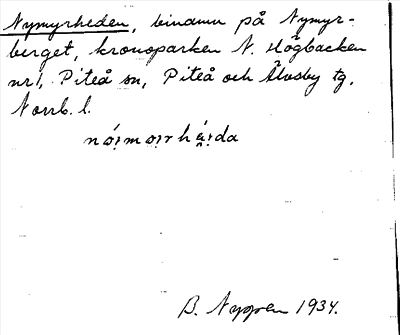 Nymyrheden, binamn på Nymyr-
berget, kronoparken N. Högbacken
nr 1, Piteå sn, Piteå och Älvsby tg,
Norrb. l.
B. Nygren 1934.